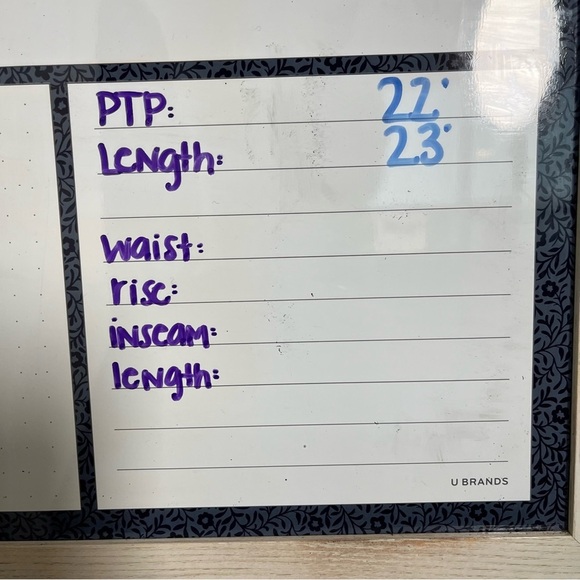 PTP: 22"
Length: 23"
waist:
rise:
inseam:
length:
U BRANDS